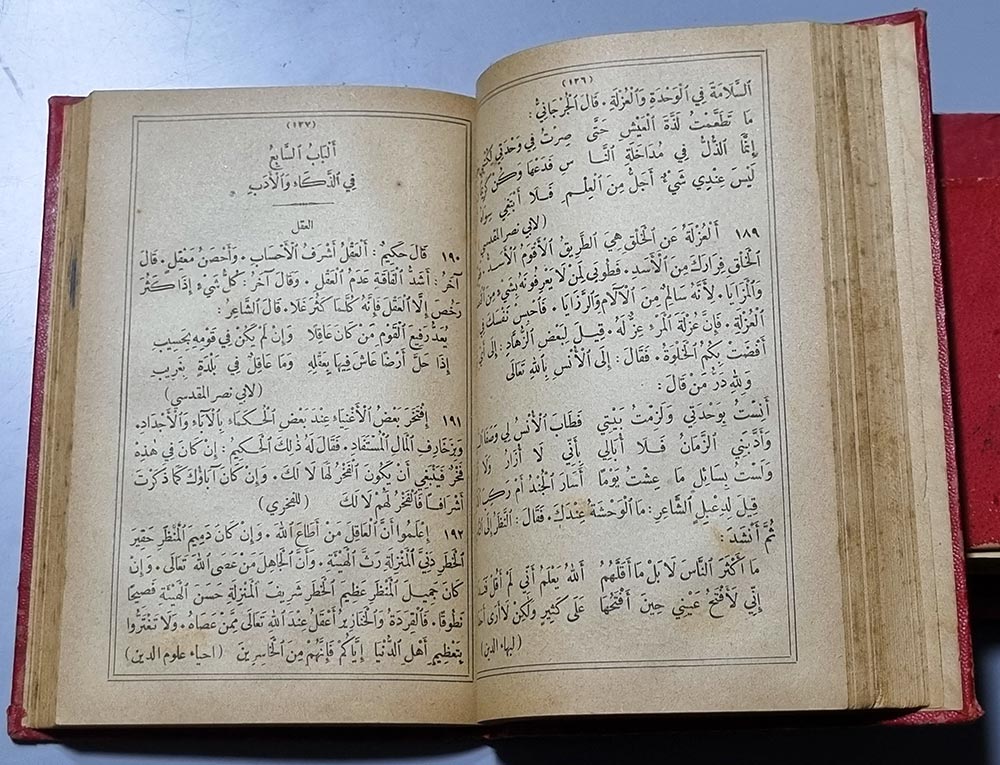 (١٣٦)
السَّلَامَةَ فِي الْوَحْدَةِ وَالْعُزْلَةِ • قَالَ الْجُرْجَانِيُّ :
مَا تَطَعَّمْتُ لَذَّةَ الْعَيْشِ حَتَّى صِرْتُ فِي وَحْدَتِي
إِنَّمَا الذُّلُّ فِي مُدَاخَلَةِ النَّا سِ فَدَعْهَا وَكُنْ
لَيْسَ عِنْدِي شَيْءٌ أَجَلُّ مِنَ الْعِلْمِ فَلَا أَبْتَغِي
(لابي نصر المقدسي)
١٨٩ أَلْعُزْلَةُ عَنِ الْخَلْقِ هِيَ الطَّرِيقُ الْأَقْوَمُ الْأَسَدُّ
الْخَلْقِ فِرَارَكَ مِنَ الْأَسَدِ • فَطُوبَى لِمَنْ لَا يَعْرِفُونَهُ بِشَيْءٍ مِنَ
وَالْمَزَايَا • لِأَنَّهُ سَالِمٌ مِنَ الْآلَامِ وَالرَّزَايَا • فَاحْبِسْ نَفْسَكَ فِي
الْعُزْلَةِ • فَإِنَّ عُزْلَةَ الْمَرْءِ عِزٌّ لَهُ • قِيلَ لِبَعْضِ الزُّهَّادِ : إِلَى
أَفْضَتْ بِكُمُ الْخَلْوَةُ • فَقَالَ : إِلَى الْأُنْسِ بِاللهِ تَعَالَى
وَلِلهِ دَرُّ مَنْ قَالَ :
أَنِسْتُ بِوَحْدَتِي وَلَزِمْتُ بَيْتِي فَطَابَ الْأُنْسُ لِي وَصَفَا
وَأَدَّبَنِي الزَّمَانُ فَلَا أُبَالِي بِأَنِّي لَا أُزَارُ وَلَا
وَلَسْتُ بِسَائِلٍ مَا عِشْتُ يَوْمًا أَسَارَ الْجُنْدُ أَمْ رَكِبَ
قِيلَ لِدِعْبِلٍ الشَّاعِرِ : مَا الْوَحْشَةُ عِنْدَكَ • فَقَالَ : النَّظَرُ إِلَى
ثُمَّ أَنْشَدَ :
مَا أَكْثَرَ النَّاسَ لَا بَلْ مَا أَقَلَّهُمُ أَللهُ يَعْلَمُ أَنِّي لَمْ أَقُلْ
إِنِّي لَأَفْتَحُ عَيْنِي حِينَ أَفْتَحُهَا عَلَى كَثِيرٍ وَلٰكِنْ لَا أَرَى
(لبهاء الدين
(١٣٧)
أَلْبَابُ السَّابِعُ
فِي الذَّكَاءِ وَالْأَدَبِ
العقل
١٩٠ قَالَ حَكِيمٌ : أَلْعَقْلُ أَشْرَفُ الْأَحْسَابِ • وَأَحْصَنُ مَعْقِلٍ • قَالَ
آخَرُ : أَشَدُّ الْفَاقَةِ عَدَمُ الْعَقْلِ • وَقَالَ آخَرُ : كُلُّ شَيْءٍ إِذَا كَثُرَ
رَخُصَ إِلَّا الْعَقْلَ فَإِنَّهُ كُلَّمَا كَثُرَ غَلَا • قَالَ الشَّاعِرُ :
يُعَدُّ رَفِيعَ الْقَوْمِ مَنْ كَانَ عَاقِلًا وَإِنْ لَمْ يَكُنْ فِي قَوْمِهِ بِحَسِيبِ
إِذَا حَلَّ أَرْضًا عَاشَ فِيهَا بِعَقْلِهِ وَمَا عَاقِلٌ فِي بَلْدَةٍ بِغَرِيبِ
(لابي نصر المقدسي)
١٩١ إِفْتَخَرَ بَعْضُ الْأَغْنِيَاءِ عِنْدَ بَعْضِ الْحُكَمَاءِ بِالْآبَاءِ وَالْأَجْدَادِ •
وَبِزَخَارِفِ الْمَالِ الْمُسْتَفَادِ • فَقَالَ لَهُ ذٰلِكَ الْحَكِيمُ : إِنْ كَانَ فِي هٰذِهِ
فَخْرٌ فَيَنْبَغِي أَنْ يَكُونَ الْفَخْرُ لَهَا لَا لَكَ • وَإِنْ كَانَ آبَاؤُكَ كَمَا ذَكَرْتَ
أَشْرَافًا فَالْفَخْرُ لَهُمْ لَا لَكَ (للفخري)
١٩٢ إِعْلَمُوا أَنَّ الْعَاقِلَ مَنْ أَطَاعَ اللهَ • وَإِنْ كَانَ دَمِيمَ الْمَنْظَرِ حَقِيرَ
الْخَطَرِ دَنِيَّ الْمَنْزِلَةِ رَثَّ الْهَيْئَةِ • وَأَنَّ الْجَاهِلَ مَنْ عَصَى اللهَ تَعَالَى • وَإِنْ
كَانَ جَمِيلَ الْمَنْظَرِ عَظِيمَ الْخَطَرِ شَرِيفَ الْمَنْزِلَةِ حَسَنَ الْهَيْئَةِ فَصِيحًا
نَطُوقًا • فَالْقِرَدَةُ وَالْخَنَازِيرُ أَعْقَلُ عِنْدَ اللهِ تَعَالَى مِمَّنْ عَصَاهُ • وَلَا تَغْتَرُّوا
بِتَعْظِيمِ أَهْلِ الدُّنْيَا إِيَّاكُمْ فَإِنَّهُمْ مِنَ الْخَاسِرِينَ (احياء علوم الدين)